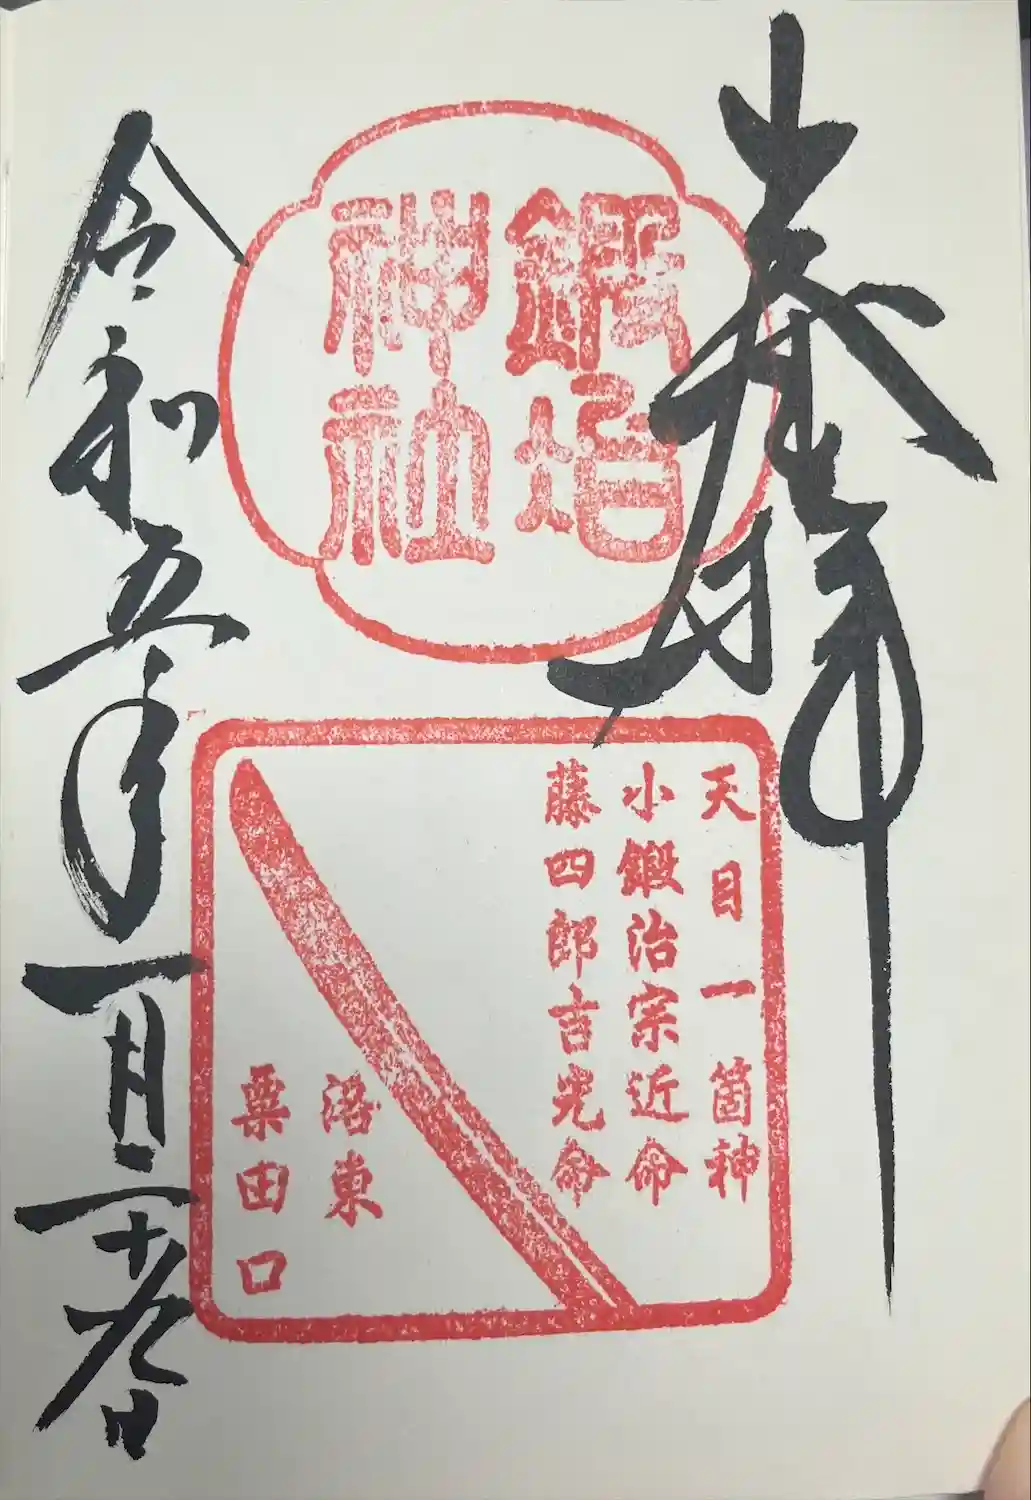 奉拝
鍛冶
神社
天目一箇神
小鍛治宗近命
藤四郎吉光命
洛東
粟田口
令和五年一月二十九日